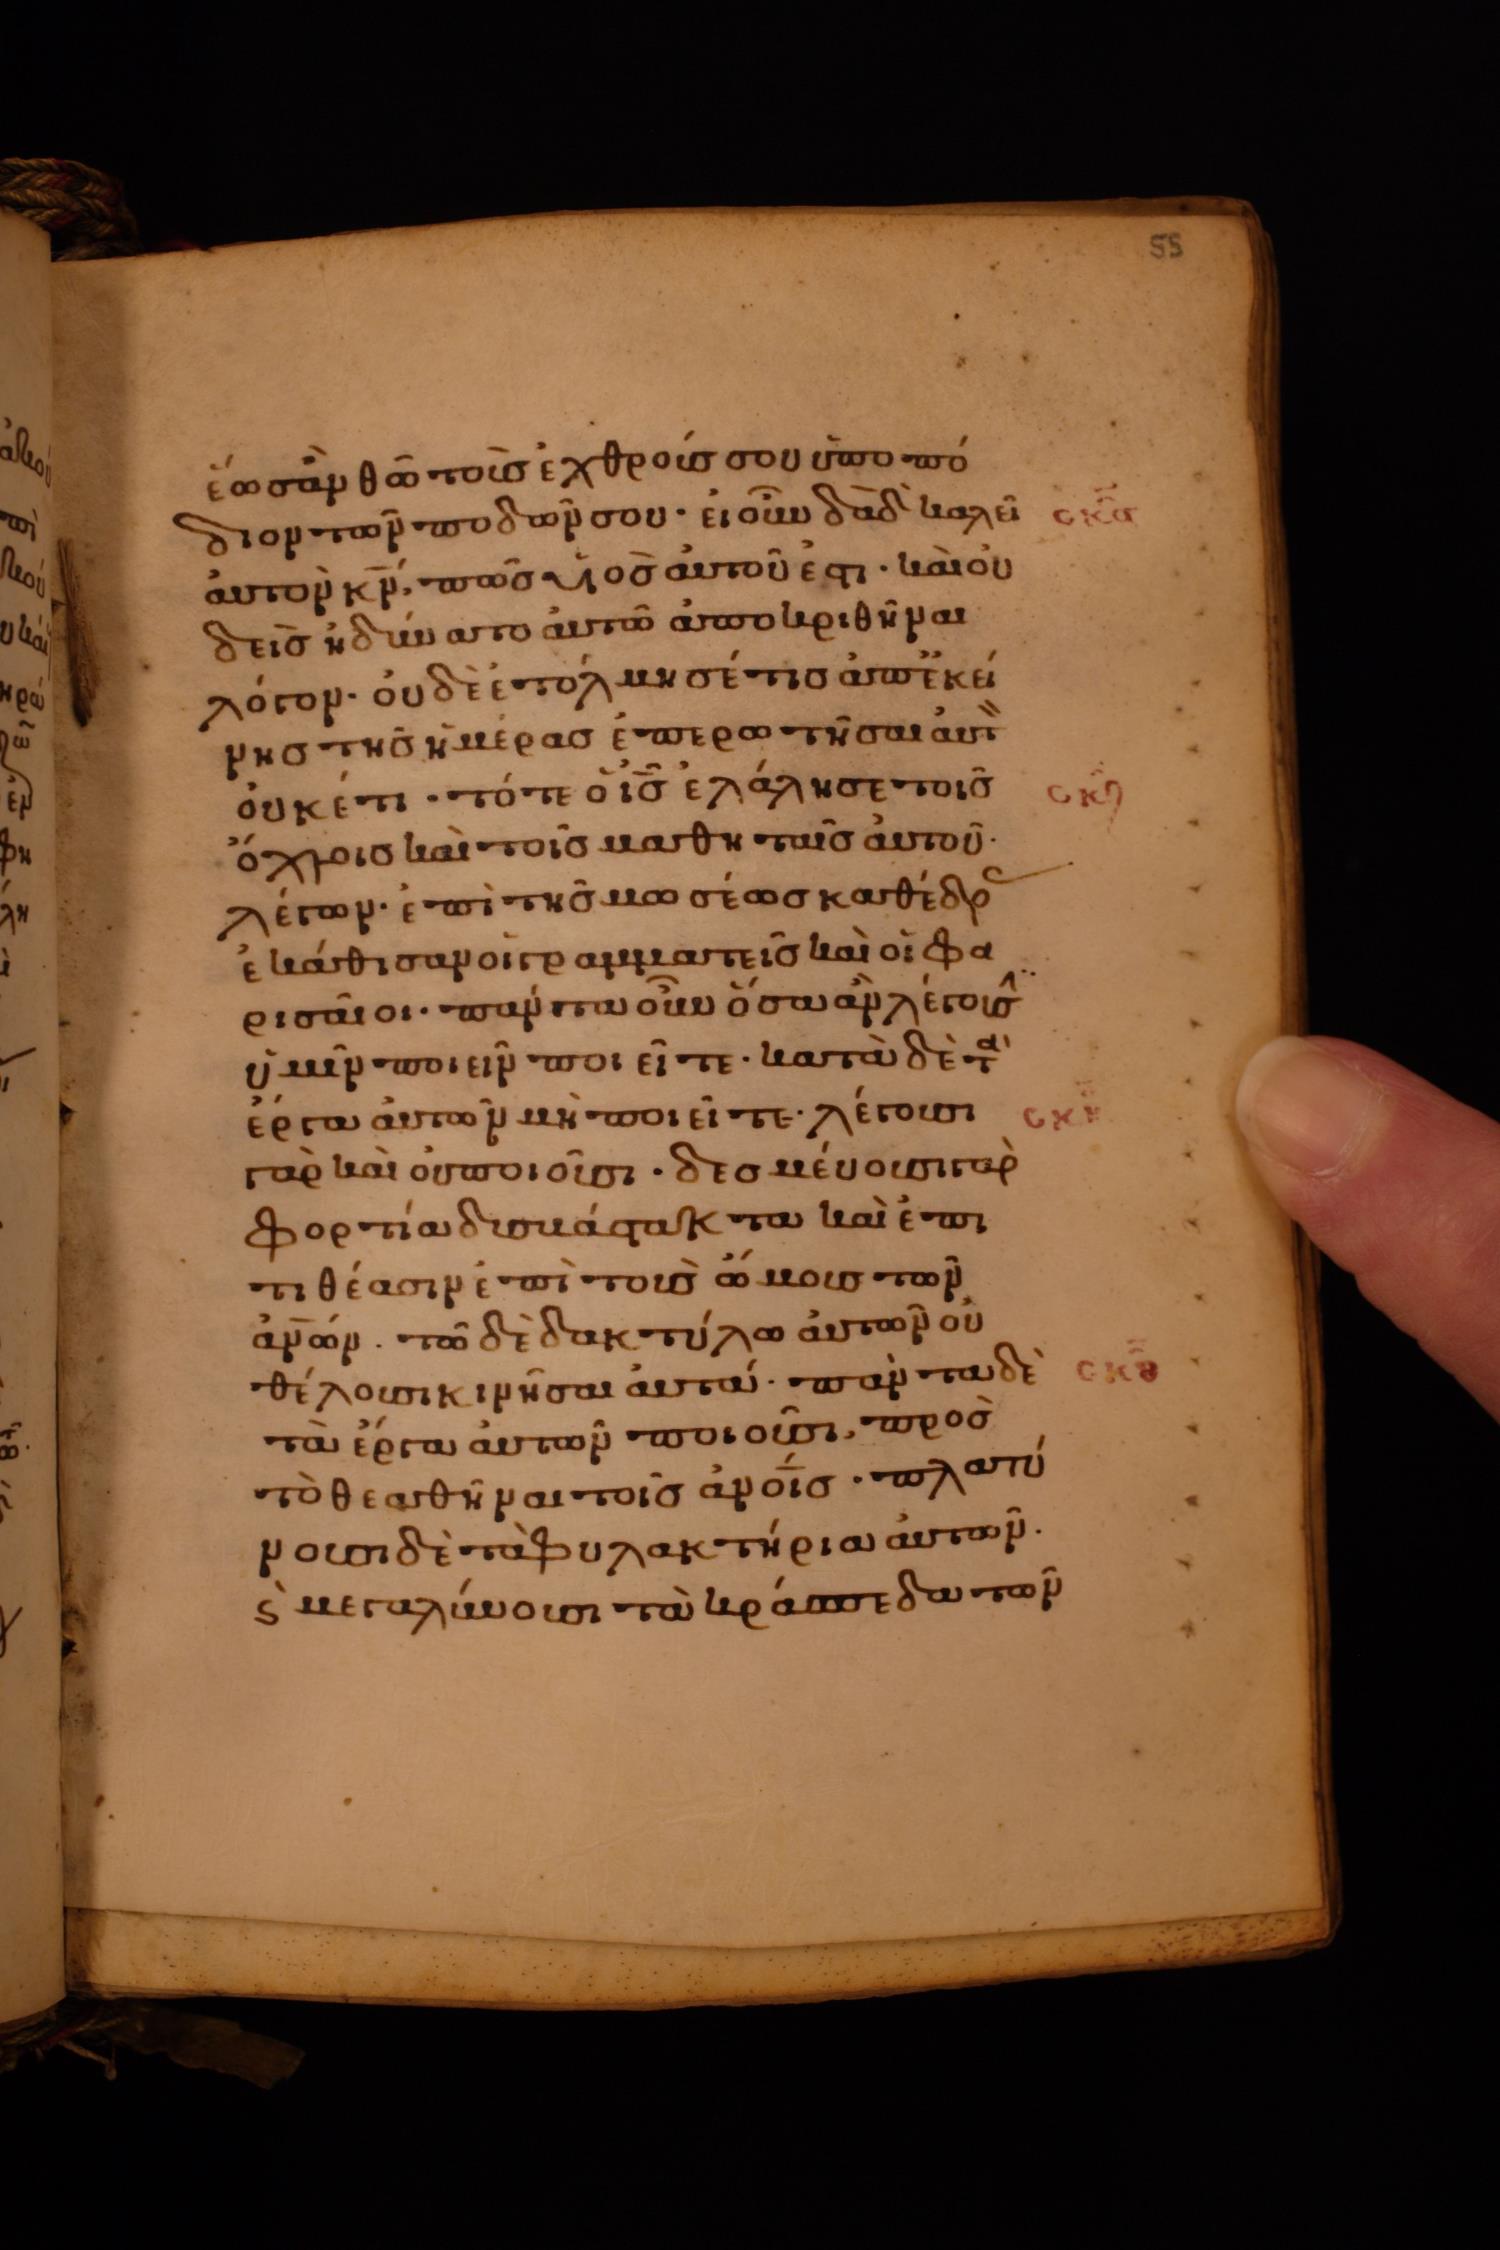 55
ἕωσ ἂν θῶ τοὺσ ἐχθρούσ σου ὑποπό
διον τῶν ποδῶν σου· εἰ οὖν δᾱδ καλεῖ
αὐτὸν κ̄ν, πῶσ υἱὸσ αὐτοῦ ἐστι· καὶ οὐ
δεὶσ ἠδύνατο αὐτῶ ἀποκριθῆναι
λόγον· οὐδὲ ἐτόλμησέ τισ ἀπ ἐκεί
νησ τῆσ ἡμέρασ ἐπερωτῆσαι αὐτ
οὐκέτι· τότε ὁ ῑσ ἐλάλησε τοῖσ
ὄχλοισ καὶ τοῖσ μαθηταῖσ αὐτοῦ·
λέγων· ἐπὶ τῆσ μωσέωσ καθέδρ
ἐκάθισαν οἱ γραμματεῖσ καὶ οἱ φα
ρισαῖοι· πάντα οὖν ὅσα ἂν λέγουσ
ὑμῖν ποιεῖν ποιεῖτε· κατὰ δὲ τὰ
ἔργα αὐτῶν μὴ ποιεῖτε· λέγουσι
γὰρ καὶ οὐ ποιοῦσι· δεσμεύουσι γὰρ
φορτία δυσβάστακτα καὶ ἐπι
τιθέασιν ἐπὶ τοὺσ ὤμουσ τῶν
ἀν̄ων· τῶ δὲ δακτύλω αὐτῶν οὐ
θέλουσι κινῆσαι αὐτά· πάντα δὲ
τὰ ἔργα αὐτῶν ποιοῦσι, πρὸσ
τὸ θεαθῆναι τοῖσ ἀνοῖσ· πλατύ
νουσι δὲ τὰ φυλακτήρια αὐτῶν·
ϛ μεγαλύνουσι τὰ κράσπεδα τῶν